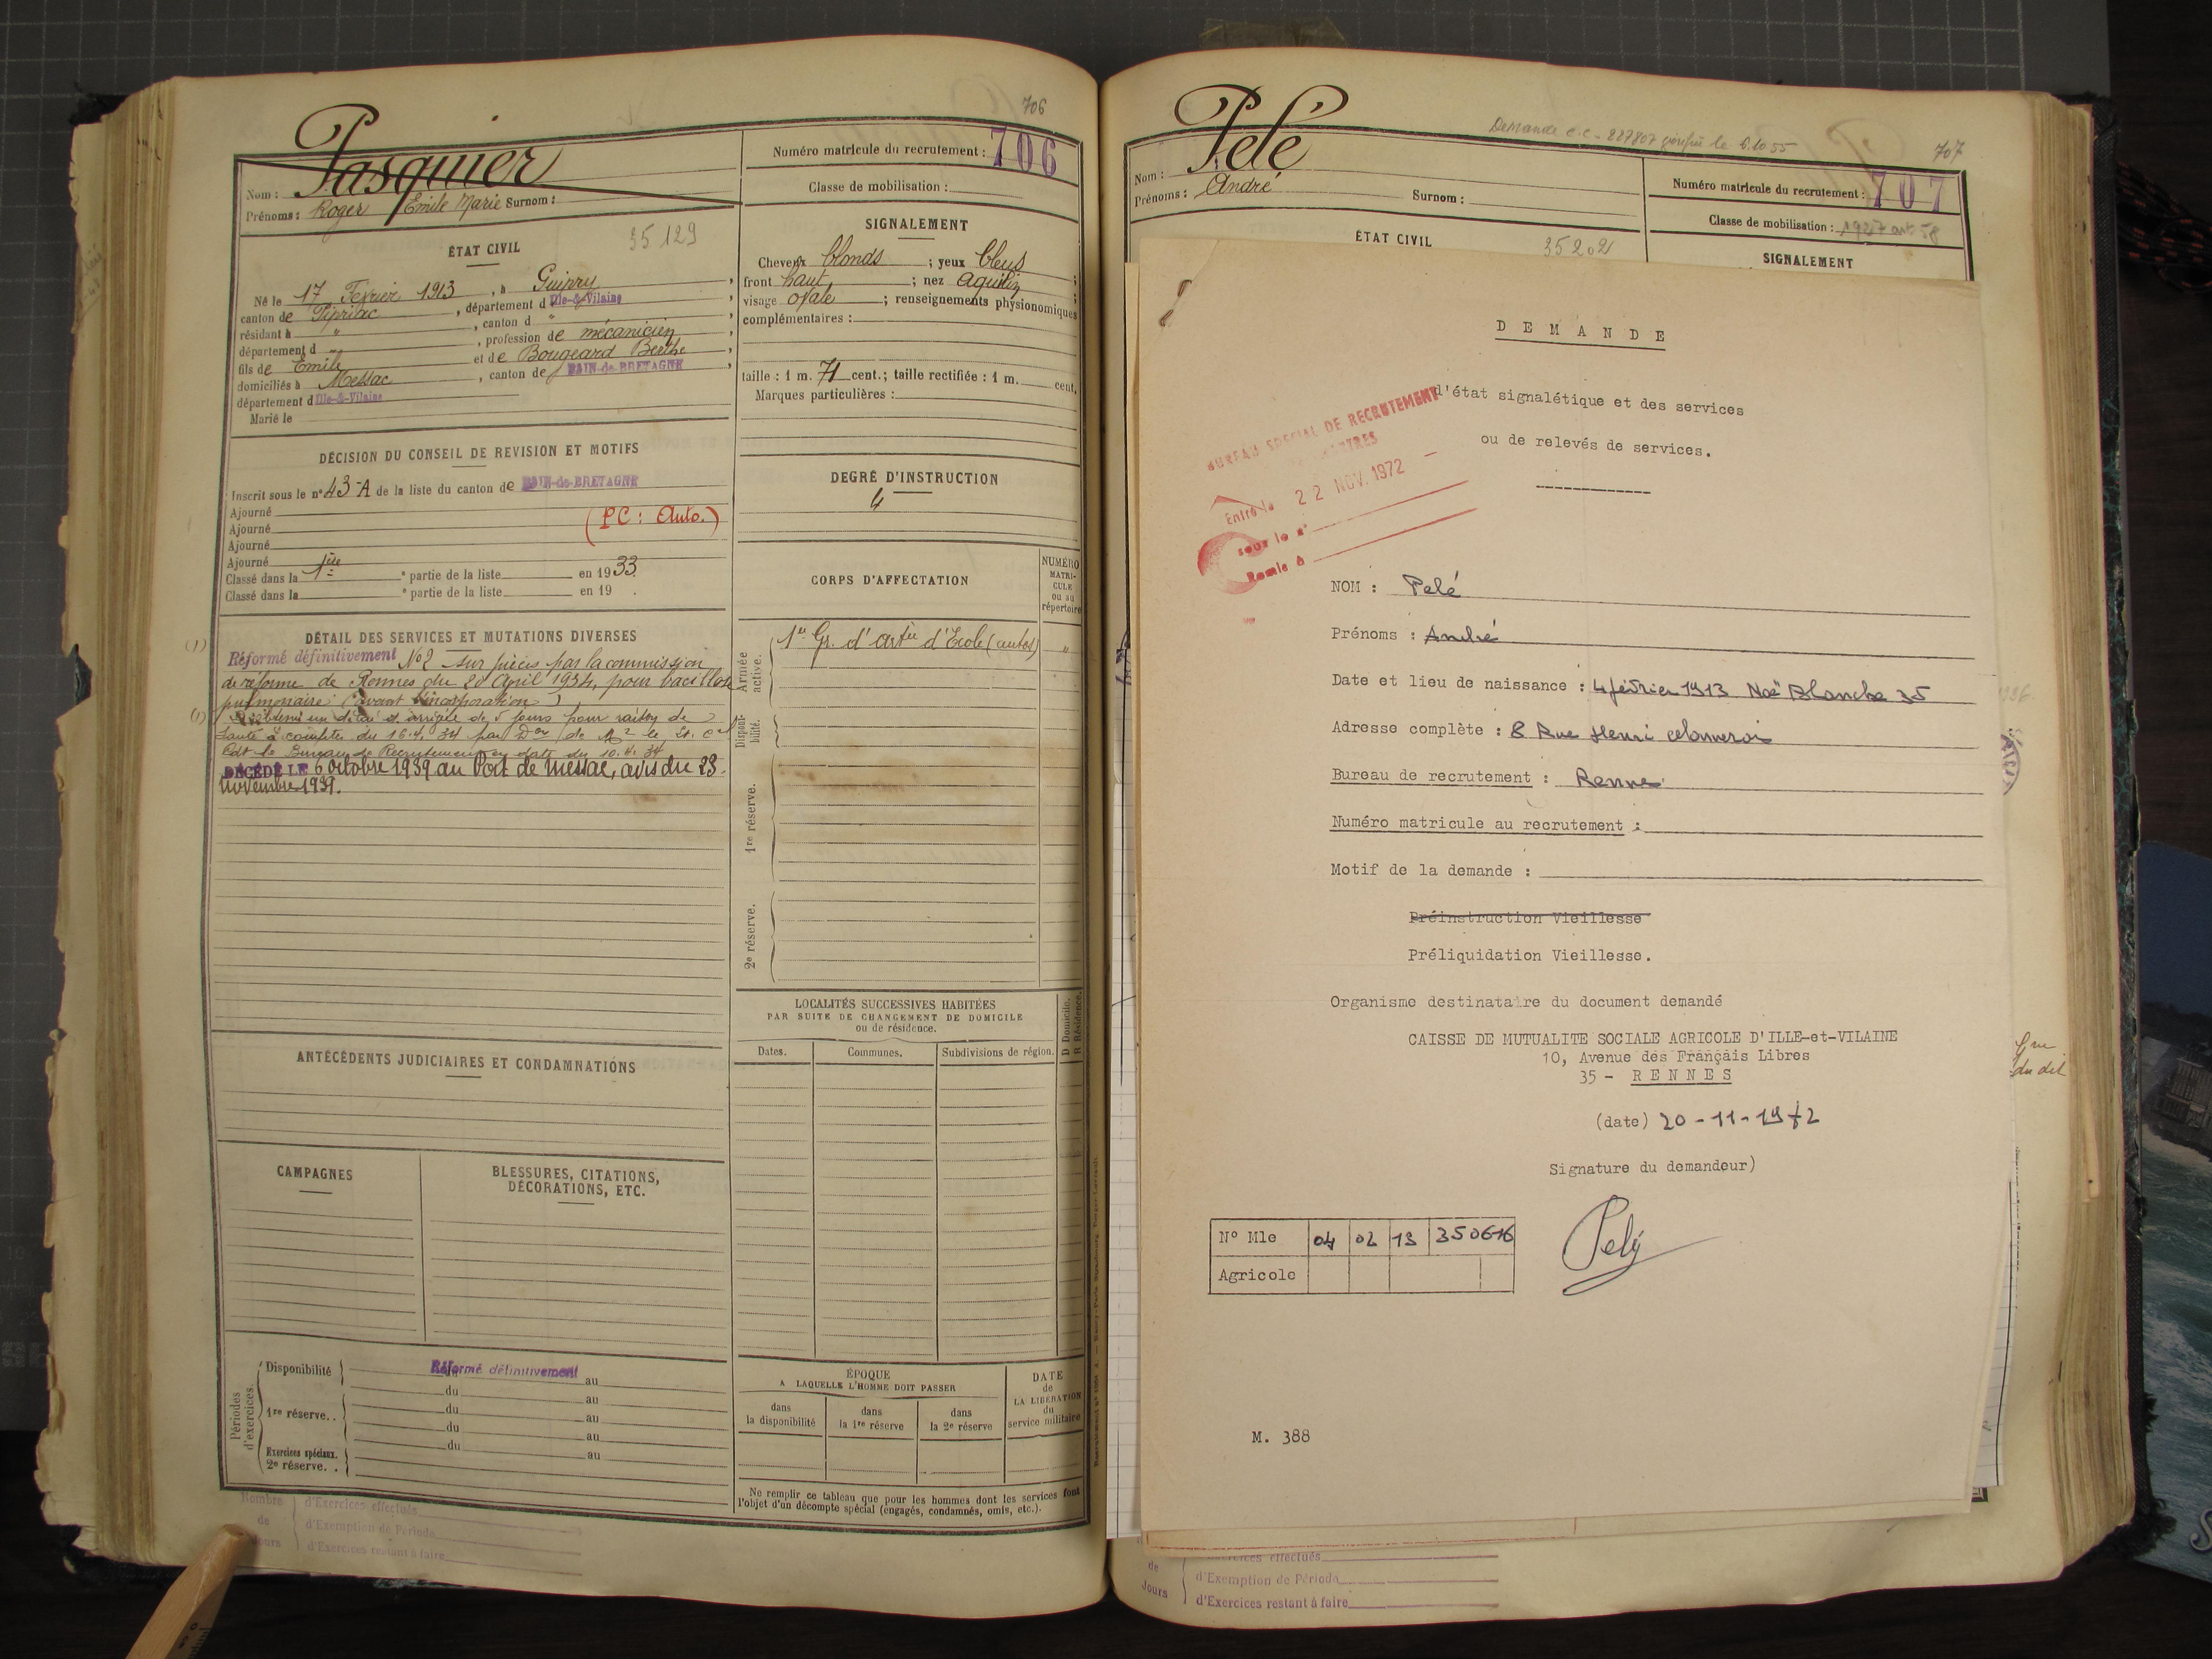 706
Pasquier
Nom :
Prénoms : Roger Emile Marie Surnom :
Numéro matricule du recrutement : 706
Classe de mobilisation :
35129
ÉTAT CIVIL
Né le 17 Février 1913, à Guipry,
canton de Pipriac, département d Ille-&-Vilaine
résidant à ", canton d "
département d ", profession de mécanicien,
fils de Emile et de Bougeard Berthe,
domiciliés à Messac, canton de BAIN-de-BRETAGNE
département d Ille-&-Vilaine
Marié le
SIGNALEMENT
Cheveux blonds ; yeux bleus ;
front haut ; nez aquilin ;
visage ovale ; renseignements physionomiques
complémentaires :
taille : 1 m. 71 cent.; taille rectifiée : 1 m. cent.
Marques particulières :
DÉCISION DU CONSEIL DE REVISION ET MOTIFS
Inscrit sous le n° 43-A de la liste du canton de BAIN-de-BRETAGNE
Ajourné
Ajourné (PC : Auto.)
Ajourné
Ajourné
Classé dans la 1ère partie de la liste en 1933.
Classé dans la e partie de la liste en 19 .
DEGRÉ D'INSTRUCTION
4
DÉTAIL DES SERVICES ET MUTATIONS DIVERSES
(1) Réformé définitivement No 2 sur pièces par la commission
de réforme de Rennes du 20 April 1934, pour bacillose
pulmonaire (avant incorporation)
(1) un délai d' de 5 jours pour raison de
santé à compter du 16.4.34 par Don de Mr le Lt. Cel
Cdt le Bureau de Recrutement en date du 10.4.34
DÉCÉDÉ LE 6 octobre 1939 au Port de Messac, avis du 23
novembre 1939.
CORPS D'AFFECTATION
NUMÉRO
MATRI-
CULE
ou au
répertoire
Armée active.
1er Gr. d'artie d'Ecole (autos) "
Disponi-
bilité.
1re réserve.
2e réserve.
LOCALITÉS SUCCESSIVES HABITÉES
PAR SUITE DE CHANGEMENT DE DOMICILE
ou de résidence.
D Domicile.
R Résidence.
Dates. Communes. Subdivisions de région.
ANTÉCÉDENTS JUDICIAIRES ET CONDAMNATIONS
CAMPAGNES
BLESSURES, CITATIONS,
DÉCORATIONS, ETC.
Périodes
d'exercices.
Disponibilité Réformé définitivement au
du au
1re réserve. . du au
du au
Exercices spéciaux. du au
2e réserve. .
ÉPOQUE
A LAQUELLE L'HOMME DOIT PASSER
dans
la disponibilité
dans
la 1re réserve
dans
la 2e réserve
DATE
de
LA LIBÉRATION
du
service militaire
Ne remplir ce tableau que pour les hommes dont les services font
l'objet d'un décompte spécial (engagés, condamnés, omis, etc.).
Nombre
de
Jours
d'Exercices effectués
d'Exemption de Période
d'Exercices restant à faire
Demande c.c. 227807 le 6.10.55
707
Pelé
Nom :
Prénoms : André Surnom :
Numéro matricule du recrutement : 707
Classe de mobilisation : 1927 art 58
ÉTAT CIVIL
35202
SIGNALEMENT
DEMANDE
d'état signalétique et des services
ou de relevés de services.
BUREAU SPECIAL DE RECRUTEMENT
Entré le 22 NOV. 1972
sous le n°
Remis à
NOM : Pelé
Prénoms : André
Date et lieu de naissance : 4 février 1913 Noë Blanche 35
Adresse complète : 8 Rue Henri
Bureau de recrutement : Rennes
Numéro matricule au recrutement :
Motif de la demande :
Préinstruction Vieillesse
Préliquidation Vieillesse.
Organisme destinataire du document demandé
CAISSE DE MUTUALITE SOCIALE AGRICOLE D'ILLE-et-VILAINE
10, Avenue des Français Libres
35 - RENNES
(date) 20-11-1972
Signature du demandeur)
Pelé
N° Mle 04 02 13 350616
Agricole
M. 388
du dit
de
Jours
d'Exercices effectués
d'Exemption de Période
d'Exercices restant à faire